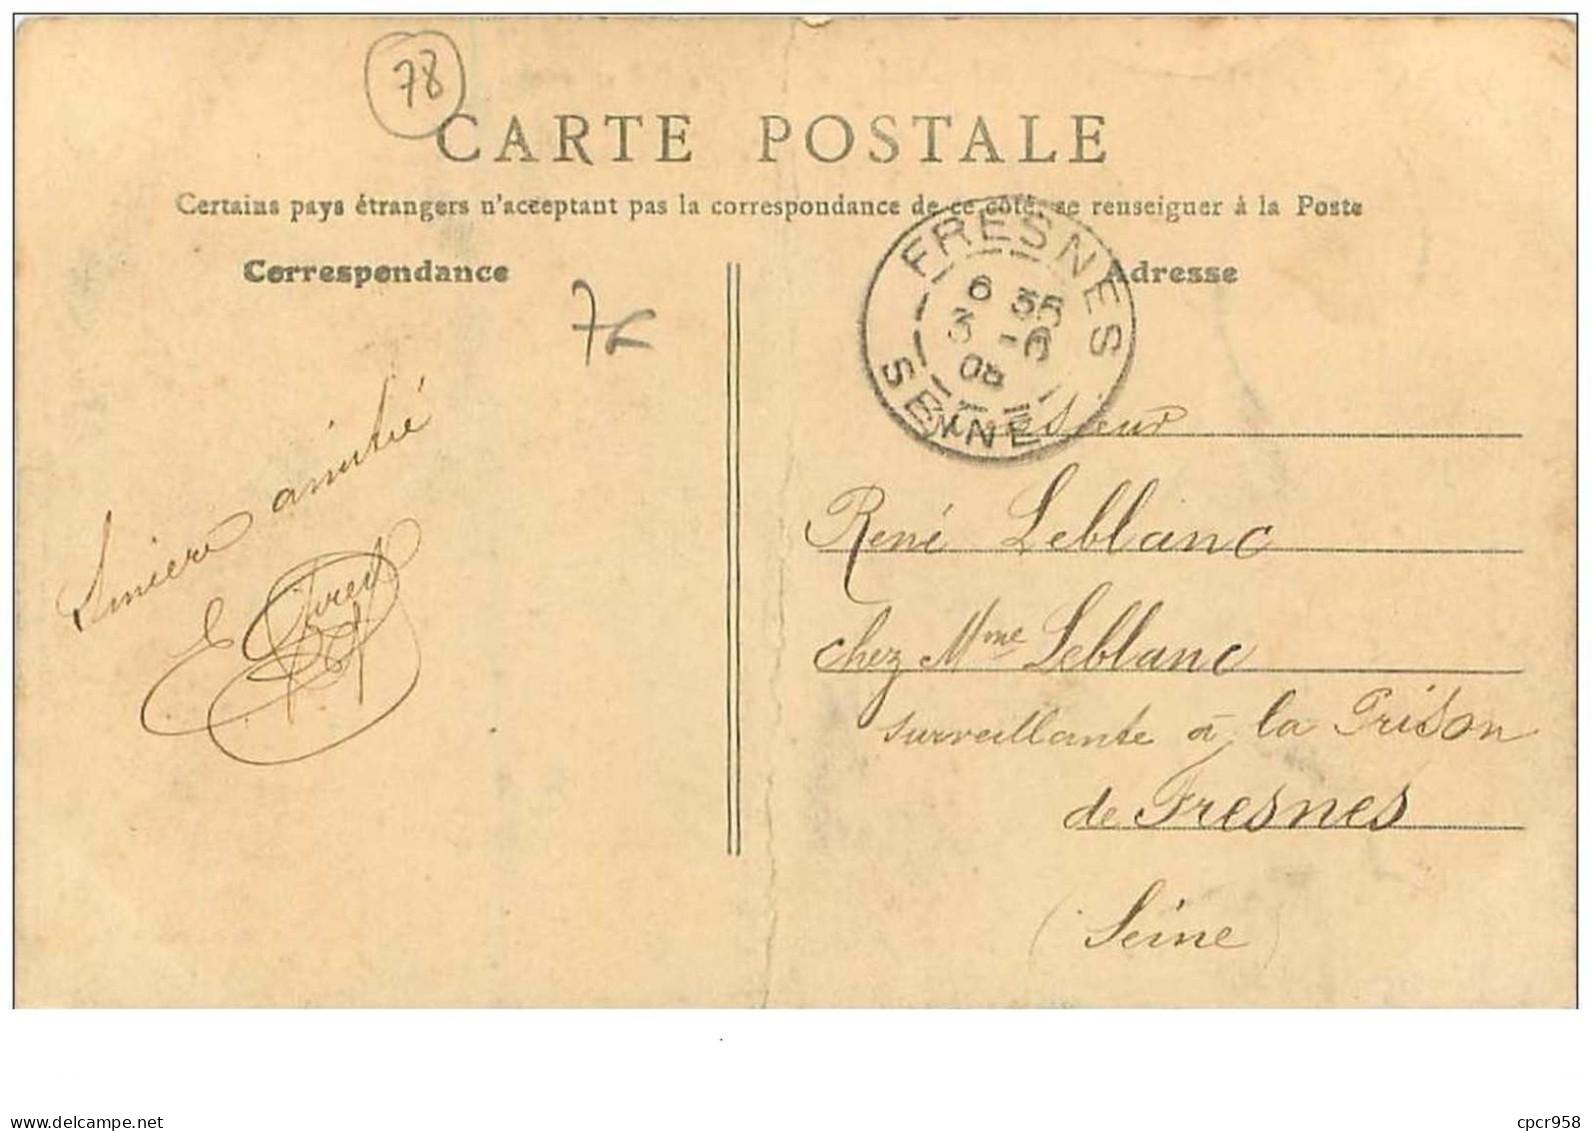 78
CARTE POSTALE
Certains pays étrangers n'acceptent pas la correspondance de ce côté, se renseigner à la Poste
Correspondance
Adresse
FRESNES
6 35
3 -6
08
SEINE
Sincère amitié
Monsieur
René Leblanc
chez Mme Leblanc
surveillante à la Prison
de Fresnes
(Seine)
www.delcampe.net
cpcr958